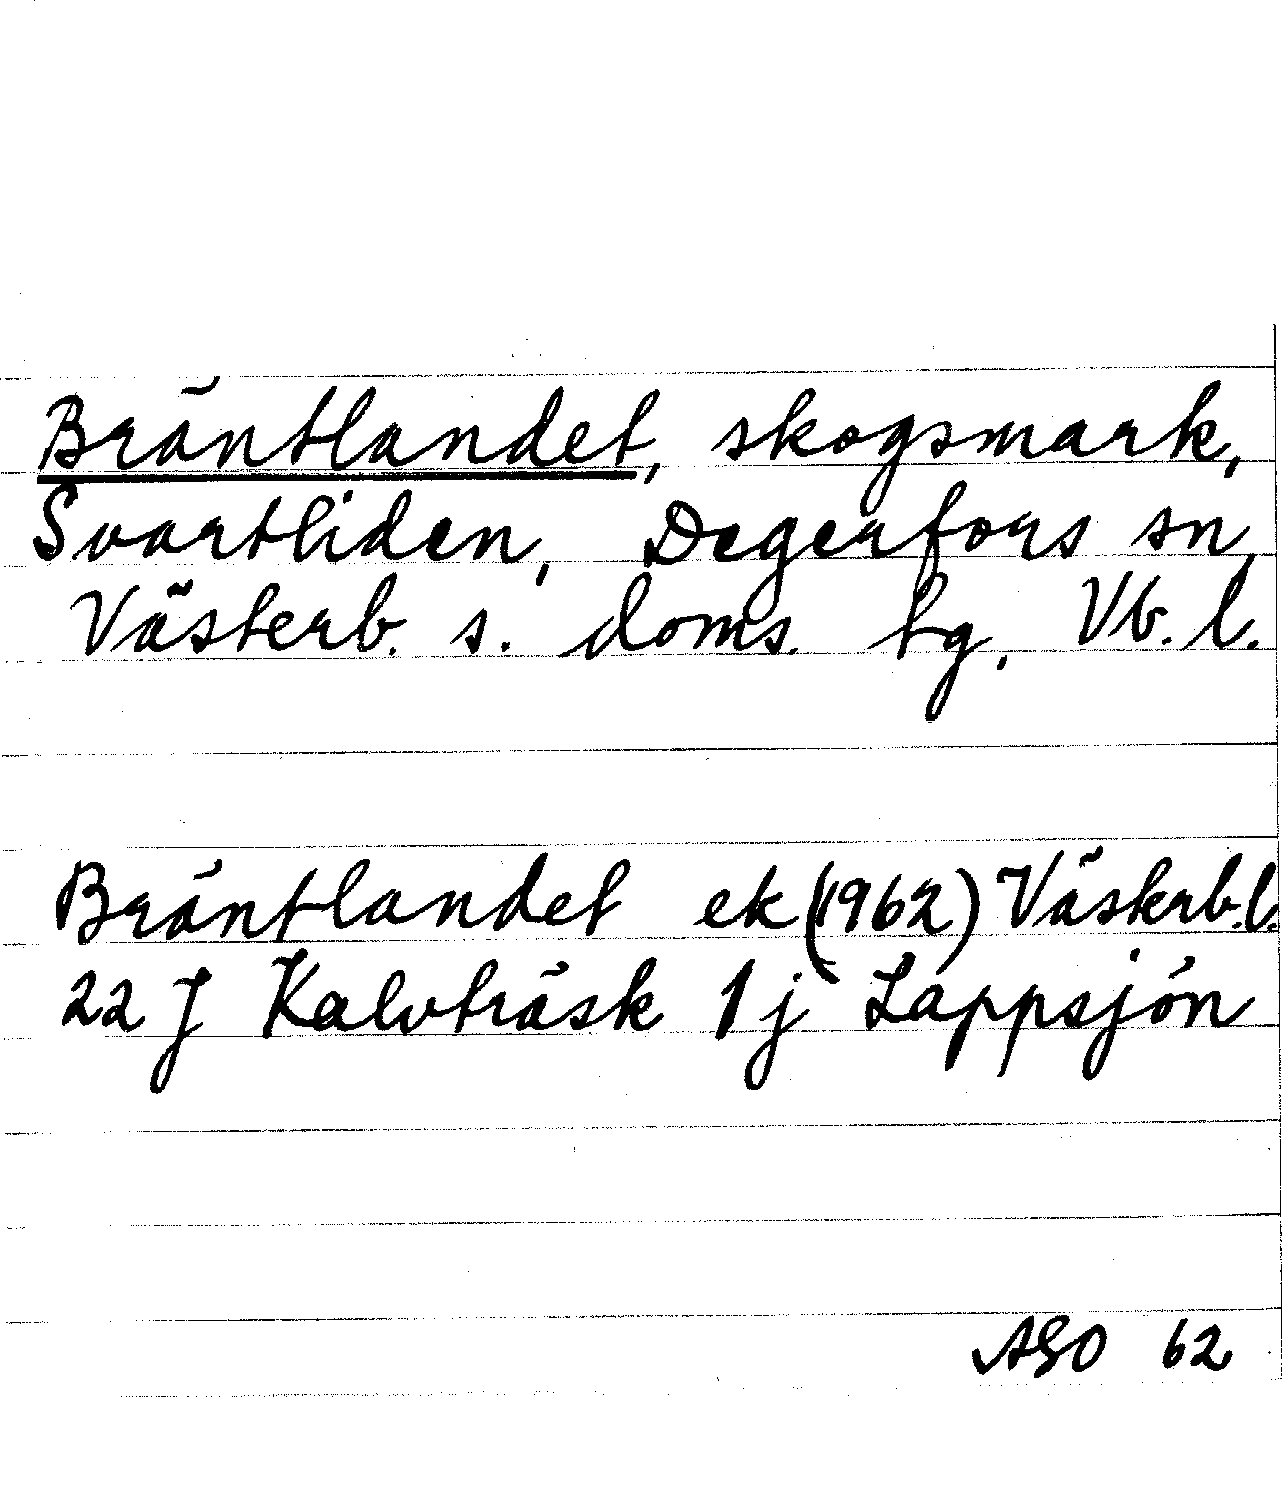 Bräntlandet, skogsmark,
Svartliden, Degerfors sn,
Västerb. s. doms. tg, Vb. l.
Bräntlandet ek (1962) Västerb. l.
22 J Kalvträsk 1j Lappsjön
ASO 62